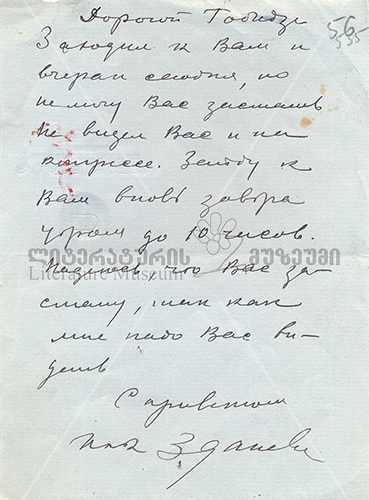 Дорогой Тобидзе
56
535
Заходил к Вам и
вчера и сегодня, но
не могу Вас застать
Не видел Вас и на
конгрессе. Зайду к
Вам вновь завтра
утром до 10 часов.
ლიტერატურის მუზეუმი
Literature Museum
Надеюсь, что Вас за-
стану, так как
мне надо Вас ви-
деть
С приветом
Зданевич